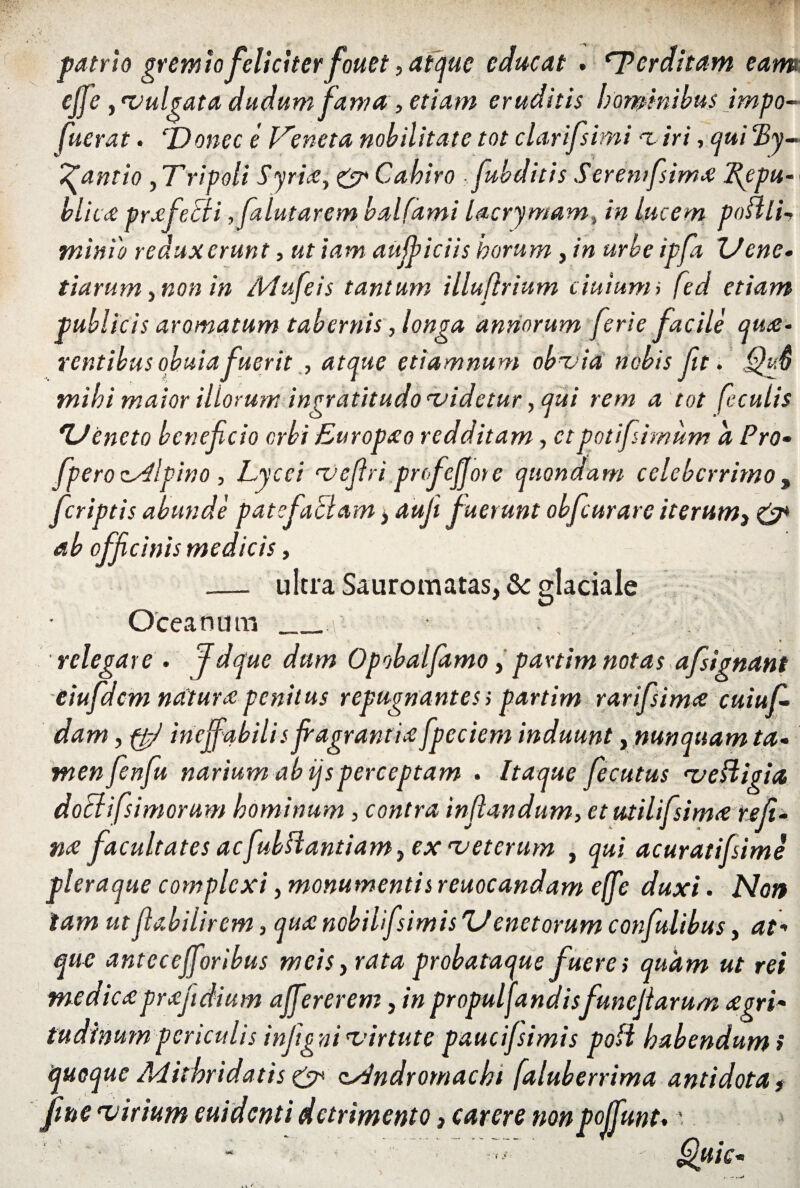 patrio gremio feliciter fouet, atque educat . Perditam eam
esse, vulgata dudum fama, etiam eruditis hominibus impo-
suerat . Donec è Veneta nobilitate tot clarissimi viri, qui By-
zantio, Tripoli Syriæ, & Cahiro subditis Serenissimæ Repu-
blicæ præfecti, salutarem balsami lacrymam, in lucem postli-
minio reduxerunt, ut iam auspiciis horum, in urbe ipsa Vene-
tiarum, non in Museis tantum illustrium ciuium; sed etiam
publicis aromatum tabernis, longa annorum serie facilè quæ-
rentibus obuia fuerit, atque etiamnum obvia nobis sit . Quò
mihi maior illorum ingratitudo videtur, qui rem a tot seculis
Veneto beneficio orbi Europæo redditam, et potissimùm à Pro-
spero Alpino, Lycei vestri professore quondam celeberrimo,
scriptis abundè patefactam, ausi fuerunt obscurare iterum, &
ab officinis medicis,
___ ultra Sauromatas, & glaciale
Oceanum ___
relegare . Idque dum Opobalsamo, partim notas assignant
eiusdem naturæ penitus repugnantes; partim rarissimæ cuius-
dam, & ineffabilis fragrantiæ speciem induunt, nunquam ta-
men sensu narium ab ijs perceptam . Itaque secutus vestigia
doctissimorum hominum, contra instandum, et utilissimæ resi-
næ facultates ac substantiam, ex veterum , qui acuratissimè
pleraque complexi, monumentis reuocandam esse duxi . Non
tam ut stabilirem, quæ nobilissimis Venetorum consulibus, at-
que antecessoribus meis, rata probataque fuere; quàm ut rei
medicæ præsidium assererem, in propulsandis funestarum ægri-
tudinum periculis insigni virtute paucissimis post habendum;
quoque Mithridatis & Andromachi saluberrima antidota,
sine virium euidenti detrimento, carere non possunt.
Quic-